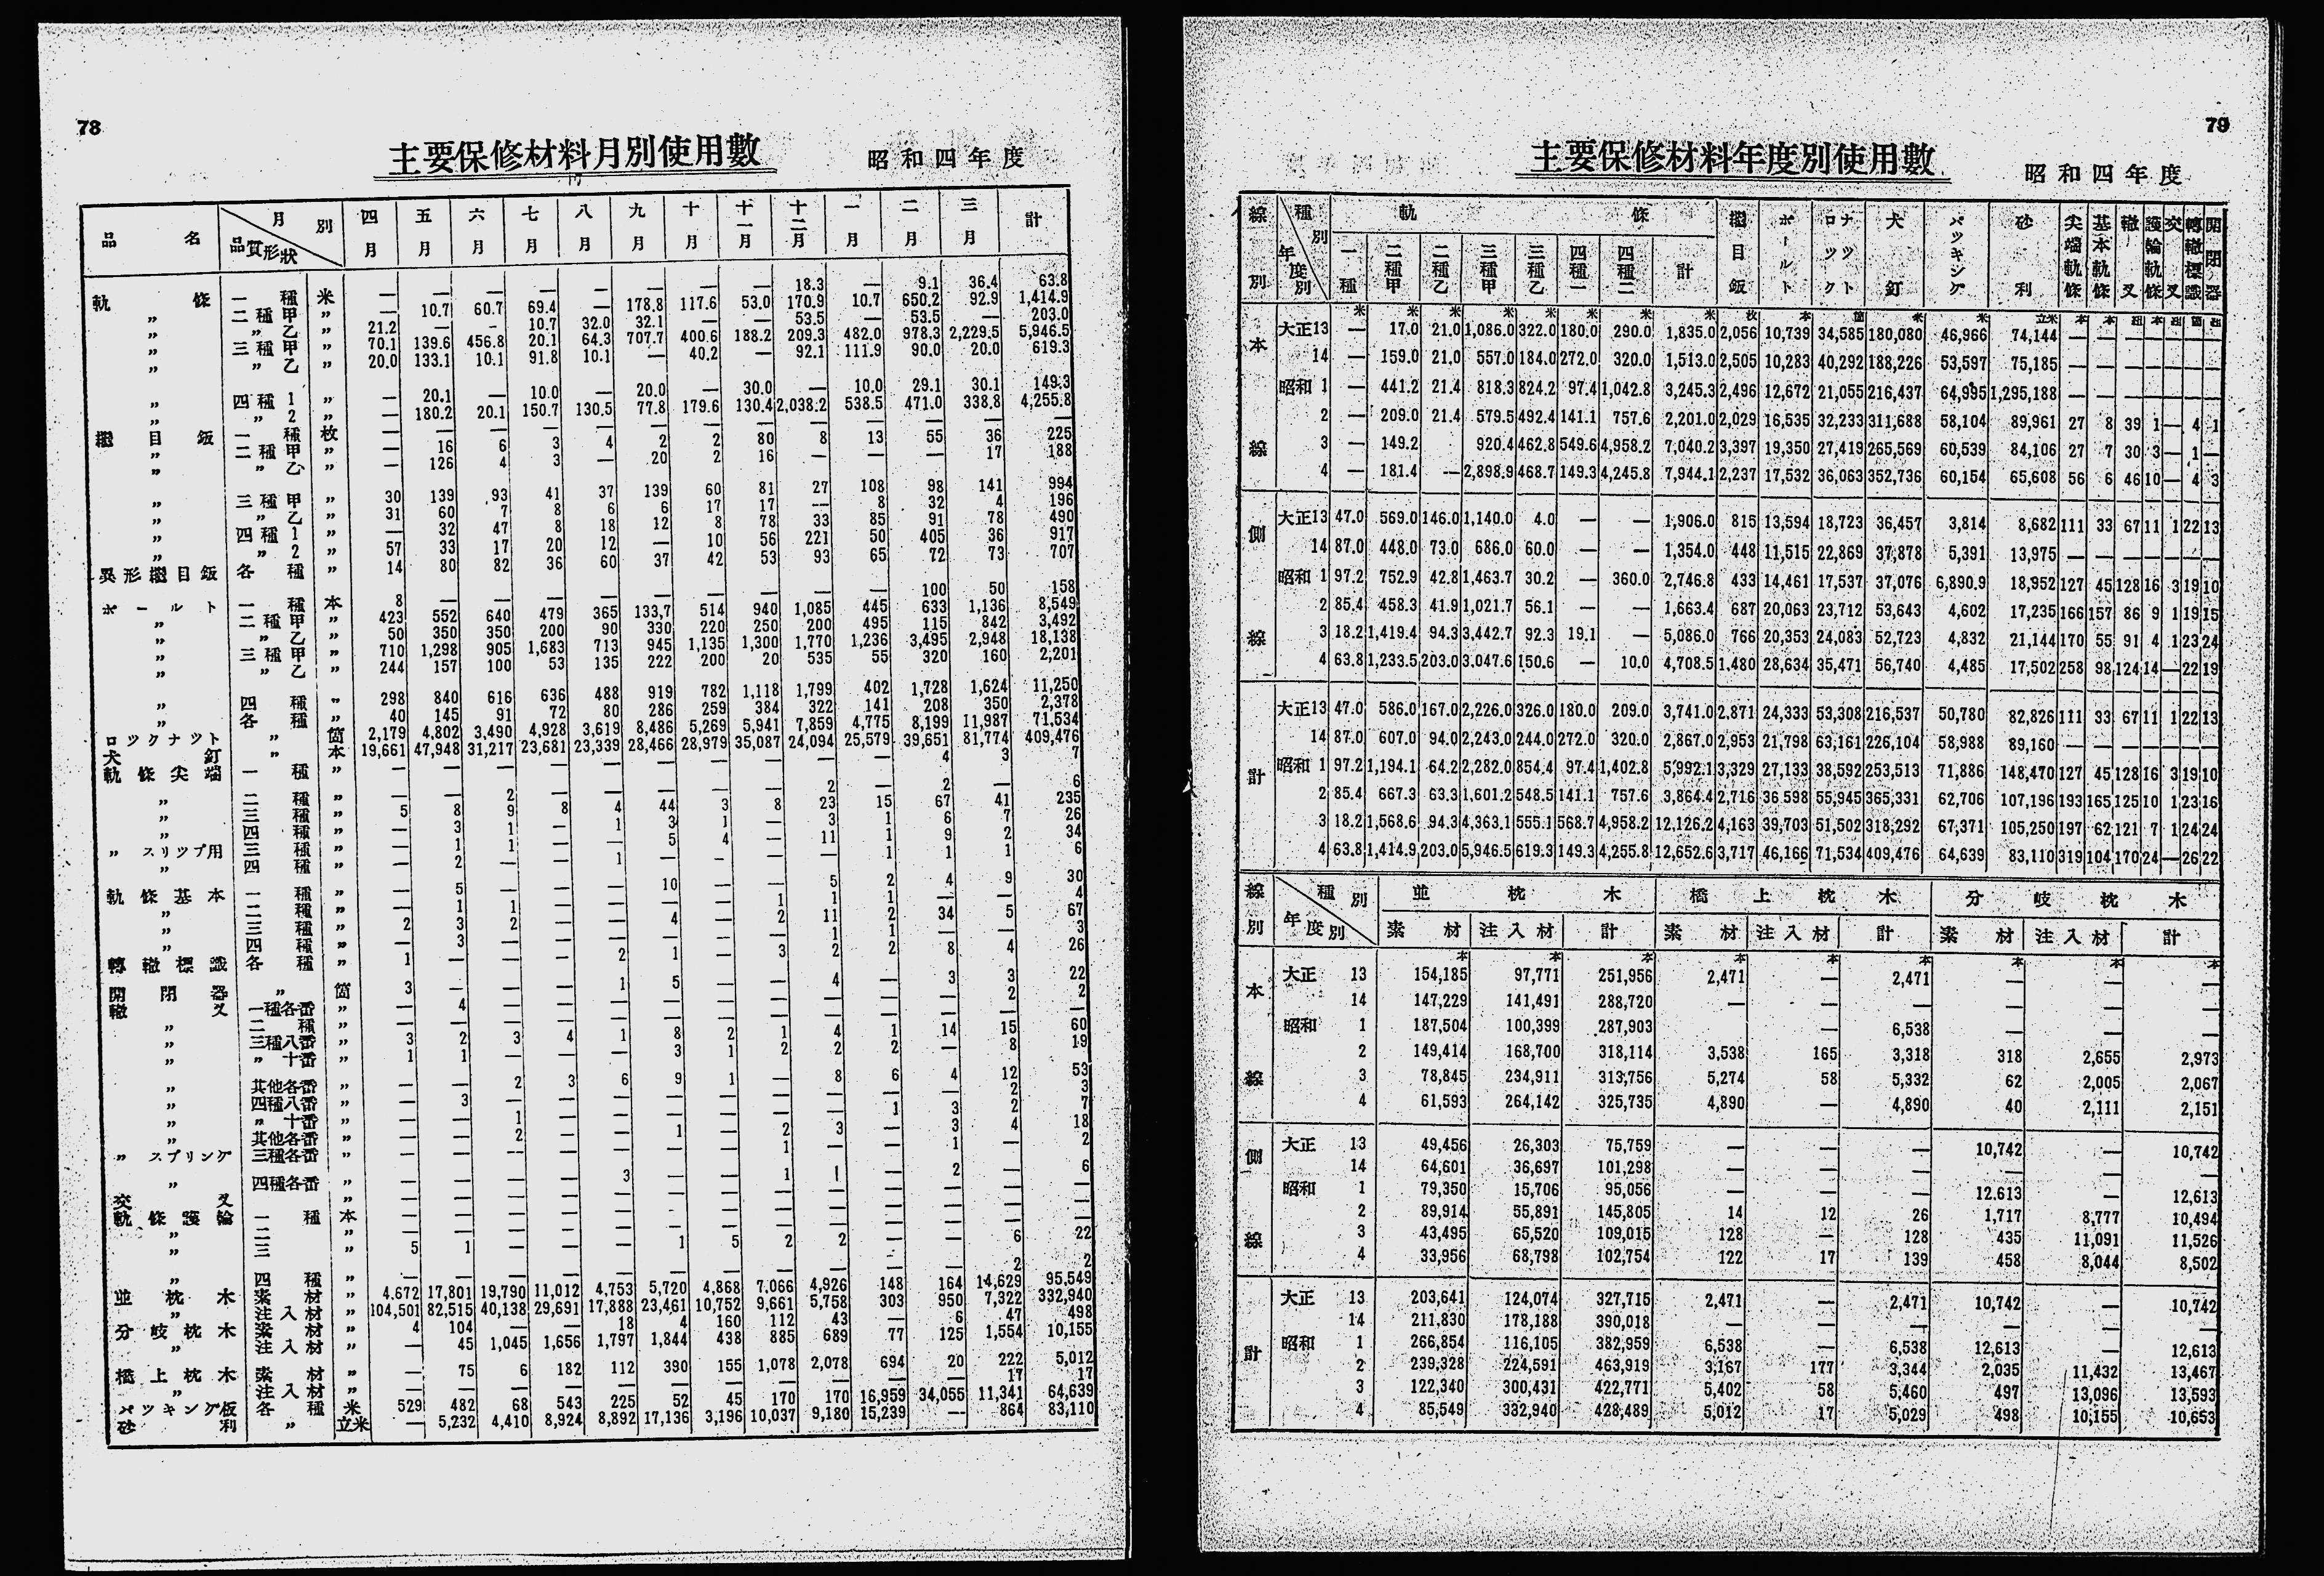 78
主要保修材料月別使用數 昭和四年度
品名 月別 品質形狀 四月 五月 六月 七月 八月 九月 十月 十一月 十二月 一月 二月 三月 計
軌條 一種 米 — — — — — — — — 18.3 — 9.1 36.4 63.8
〃 二種甲 〃 — 10.7 60.7 69.4 — 178.8 117.6 53.0 170.9 10.7 650.2 92.9 1,414.9
〃 〃乙 〃 21.2 — - 10.7 32.0 32.1 — — 53.5 — 53.5 — 203.0
〃 三種甲 〃 70.1 139.6 456.8 20.1 64.3 707.7 400.6 188.2 209.3 482.0 978.3 2,229.5 5,946.5
〃 〃乙 〃 20.0 133.1 10.1 91.8 10.1 — 40.2 — 92.1 111.9 90.0 20.0 619.3
〃 四種1 〃 — 20.1 — 10.0 — 20.0 — 30.0 — 10.0 29.1 30.1 149.3
〃 〃2 〃 — 180.2 20.1 150.7 130.5 77.8 179.6 130.4 2,038.2 538.5 471.0 338.8 4,255.8
繼目鈑 一種 枚 — — — — — — — — — — — — —
〃 二種甲 〃 — 16 6 3 4 2 2 80 8 13 55 36 225
〃 〃乙 〃 — 126 4 3 — 20 2 16 — — — 17 188
〃 三種甲 〃 30 139 93 41 37 139 60 81 27 108 98 141 994
〃 〃乙 〃 31 60 7 8 6 6 17 17 — 8 32 4 196
〃 四種1 〃 — 32 47 8 18 12 8 78 33 85 91 78 490
〃 〃2 〃 57 33 17 20 12 — 10 56 221 50 405 36 917
異形繼目鈑 各種 〃 14 80 82 36 60 37 42 53 93 65 72 73 707
ボールト 一種 本 8 — — — — — — — — — 100 50 158
〃 二種甲 〃 423 552 640 479 365 133,7 514 940 1,085 445 633 1,136 8,549
〃 〃乙 〃 50 350 350 200 90 330 220 250 200 495 115 842 3,492
〃 三種甲 〃 710 1,298 905 1,683 713 945 1,135 1,300 1,770 1,236 3,495 2,948 18,138
〃 〃乙 〃 244 157 100 53 135 222 200 20 535 55 320 160 2,201
〃 四種 〃 298 840 616 636 488 919 782 1,118 1,799 402 1,728 1,624 11,250
〃 各種 〃 40 145 91 72 80 286 259 384 322 141 208 350 2,378
ロックナット 〃 箇 2,179 4,802 3,490 4,928 3,619 8,486 5,269 5,941 7,859 4,775 8,199 11,987 71,534
犬釘 〃 本 19,661 47,948 31,217 23,681 23,339 28,466 28,979 35,087 24,094 25,579 39,651 81,774 409,476
軌條尖端 一種 〃 — — — — — — — — — — 4 3 7
〃 二種 〃 — — 2 — — — — — 2 — 2 — 6
〃 三種 〃 5 8 9 8 4 44 3 8 23 15 67 41 235
〃 四種 〃 — 3 1 — 1 3 1 — 3 1 6 7 26
〃スリップ用 三種 〃 — 1 1 — — 5 4 — 11 1 9 2 34
〃 四種 〃 — 2 — — 1 — — — — 1 1 1 6
軌條基本 一種 〃 — 5 — — — 10 — — 5 2 4 9 30
〃 二種 〃 — 1 1 — — — — 1 1 1 — — 4
〃 三種 〃 2 3 2 — — 4 — 2 11 2 34 5 67
〃 四種 〃 — 3 — — — — — — 1 1 — — 3
轉轍標識 各種 〃 1 — — — 2 1 — 3 2 2 8 4 26
開閉器 〃 箇 3 — — — 1 5 — — 4 — 3 3 22
轍叉 一種各番 〃 — 4 — — — — — — — — — 2 2
〃 二種 〃 — — — — — — — — — — — — —
〃 三種八番 〃 3 2 3 4 1 8 2 1 4 1 14 15 60
〃 〃十番 〃 1 1 — — — 3 1 2 2 2 — 8 19
〃 其他各番 〃 — — 2 3 6 9 1 — 8 6 4 12 53
〃 四種八番 〃 — 3 — — — — — — — — — 2 3
〃 〃十番 〃 — — 1 — — — — — — 1 3 2 7
〃 其他各番 〃 — — 2 — — 1 — 2 3 — 3 4 18
〃スプリング 三種各番 〃 — — — — — — — 1 — — 1 — 2
〃 四種各番 〃 — — — — 3 — — 1 1 — 2 — 6
交叉 〃 — — — — — — — — — — — — —
軌條護輪 一種 本 — — — — — — — — — — — — —
〃 二 〃 — — — — — — — — — — — — —
〃 三 〃 5 1 — — — 1 5 2 2 — — 6 22
〃 四種 〃 — — — — — — — — — — — 2 2
並枕木 素材 〃 4,672 17,801 19,790 11,012 4,753 5,720 4,868 7,066 4,926 148 164 14,629 95,549
〃 注入材 〃 104,501 82,515 40,138 29,691 17,888 23,461 10,752 9,661 5,758 303 950 7,322 332,940
分岐枕木 素材 〃 4 104 — — 18 4 160 112 43 — 6 47 498
〃 注入材 〃 — 45 1,045 1,656 1,797 1,844 438 885 689 77 125 1,554 10,155
橋上枕木 素材 〃 — 75 6 182 112 390 155 1,078 2,078 694 20 222 5,012
〃 注入材 〃 — — — — — — — — — — — 17 17
パッキング板 各種 米 529 482 68 543 225 52 45 170 170 16,959 34,055 11,341 64,639
砂利 〃 立米 — 5,232 4,410 8,924 8,892 17,136 3,196 10,037 9,180 15,239 — 864 83,110
79
主要保修材料年度別使用數 昭和四年度
線別 種別 年度別 軌條 繼目鈑 ボールト ロックナット 犬釘 パッキング 砂利 尖端軌條 基本軌條 轍叉 護輪軌條 交叉 轉轍標識 開閉器
一種 二種甲 二種乙 三種甲 三種乙 四種一 四種二 計
米 米 米 米 米 米 米 米 枚 本 箇 本 米 立米 本 本 組 本 組 箇 組
本線 大正13 — 17.0 21.0 1,086.0 322.0 180.0 290.0 1,835.0 2,056 10,739 34,585 180,080 46,966 74,144 — — — — — — —
14 — 159.0 21.0 557.0 184.0 272.0 320.0 1,513.0 2,505 10,283 40,292 188,226 53,597 75,185 — — — — — — —
昭和1 — 441.2 21.4 818.3 824.2 97.4 1,042.8 3,245.3 2,496 12,672 21,055 216,437 64,995 1,295,188 — — — — — — —
2 — 209.0 21.4 579.5 492.4 141.1 757.6 2,201.0 2,029 16,535 32,233 311,688 58,104 89,961 27 8 39 1 — 4 1
3 — 149.2 920.4 462.8 549.6 4,958.2 7,040.2 3,397 19,350 27,419 265,569 60,539 84,106 27 7 30 3 — 1 —
4 — 181.4 — 2,898.9 468.7 149.3 4,245.8 7,944.1 2,237 17,532 36,063 352,736 60,154 65,608 56 6 46 10 — 4 3
側線 大正13 47.0 569.0 146.0 1,140.0 4.0 — — 1,906.0 815 13,594 18,723 36,457 3,814 8,682 111 33 67 11 1 22 13
14 87.0 448.0 73.0 686.0 60.0 — — 1,354.0 448 11,515 22,869 37,878 5,391 13,975 — — — — — — —
昭和1 97.2 752.9 42.8 1,463.7 30.2 — 360.0 2,746.8 433 14,461 17,537 37,076 6,890.9 18,952 127 45 128 16 3 19 10
2 85.4 458.3 41.9 1,021.7 56.1 — — 1,663.4 687 20,063 23,712 53,643 4,602 17,235 166 157 86 9 1 19 15
3 18.2 1,419.4 94.3 3,442.7 92.3 19.1 — 5,086.0 766 20,353 24,083 52,723 4,832 21,144 170 55 91 4 1 23 24
4 63.8 1,233.5 203.0 3,047.6 150.6 — 10,0 4,708.5 1,480 28,634 35,471 56,740 4,485 17,502 258 98 124 14 — 22 19
計 大正13 47.0 586.0 167.0 2,226.0 326.0 180.0 209.0 3,741.0 2,871 24,333 53,308 216,537 50,780 82,826 111 33 67 11 1 22 13
14 87.0 607.0 94.0 2,243.0 244.0 272.0 320.0 2,867.0 2,953 21,798 63,161 226,104 58,988 89,160 — — — — — — —
昭和1 97.2 1,194.1 64.2 2,282.0 854.4 97.4 1,402.8 5,992.1 3,329 27,133 38,592 253,513 71,886 148,470 127 45 128 16 3 19 10
2 85.4 667.3 63.3 1,601.2 548.5 141.1 757.6 3,864.4 2,716 36,598 55,945 365,331 62,706 107,196 193 165 125 10 1 23 16
3 18.2 1,568.6 94.3 4,363.1 555.1 568.7 4,958.2 12,126.2 4,163 39,703 51,502 318,292 67,371 105,250 197 62 121 7 1 24 24
4 63.8 1,414.9 203.0 5,946.5 619.3 149.3 4,255.8 12,652.6 3,717 46,166 71,534 409,476 64,639 83,110 319 104 170 24 — 26 22
線別 種別 年度別 並枕木 橋上枕木 分岐枕木
素材 注入材 計 素材 注入材 計 素材 注入材 計
本 本 本 本 本 本 本 本 本
本線 大正13 154,185 97,771 251,956 2,471 — 2,471 — — —
14 147,229 141,491 288,720 — — — — — —
昭和1 187,504 100,399 287,903 — 6,538 — — —
2 149,414 168,700 318,114 3,538 165 3,318 318 2,655 2,973
3 78,845 234,911 313,756 5,274 58 5,332 62 2,005 2,067
4 61,593 264,142 325,735 4,890 — 4,890 40 2,111 2,151
側線 大正13 49,456 26,303 75,759 — — — 10,742 — 10,742
14 64,601 36,697 101,298 — — — — — —
昭和1 79,350 15,706 95,056 — — — 12.613 — 12,613
2 89,914 55,891 145,805 14 12 26 1,717 8,777 10,494
3 43,495 65,520 109,015 128 — 128 435 11,091 11,526
4 33,956 68,798 102,754 122 17 139 458 8,044 8,502
計 大正13 203,641 124,074 327,715 2,471 — 2,471 10,742 — 10,742
14 211,830 178,188 390,018 — — — — — —
昭和1 266,854 116,105 382,959 6,538 — 6,538 12,613 — 12,613
2 239,328 224,591 463,919 3,167 177 3,344 2,035 11,432 13,467
3 122,340 300,431 422,771 5,402 58 5,460 497 13,096 13,593
4 85,549 332,940 428,489 5,012 17 5,029 498 10,155 10,653